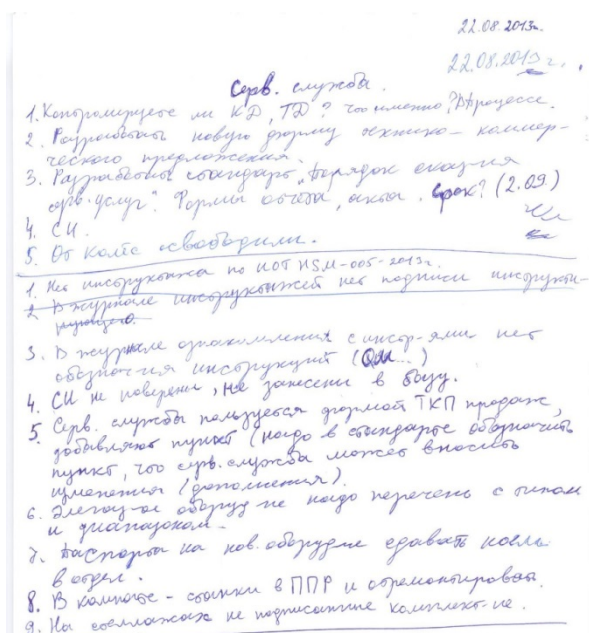 22.08.2013г.
22.08.2013г.
Серв. служба.
1. Контролируете ли КД, ТД? Что именно? Процессе.
2. Разработать новую форму технико-коммер-
ческого предложения.
3. Разработать стандарт "Порядок оказ-ия
серв. услуг". Формы отчёта, акта. Срок? (2.09)
4. СИ.
5. От колёс освободили.
1. Нет инструктажа по ИОТ HSM-005-2013г.
2 В журнале инструктажей нет подписи инструкти-
рующего.
3. В журнале ознакомления с инстр-ями нет
обознач-ия инструкций (
4. СИ не поверены, не занесены в базу.
5. Серв. службы пользуется формой ТКП продаж,
добавляют пункт (надо в стандарте обозначить
пункт, что серв. служба может вносить
изменения (дополнения).
6. оборуд-ие надо перечень с типом
и диапазоном.
7. Паспорта на нов. оборуд-ие сдавать
в отдел.
8. В - станки в ППР и отремонтировать.
9. На стеллажах не подписанные комплект-ие.